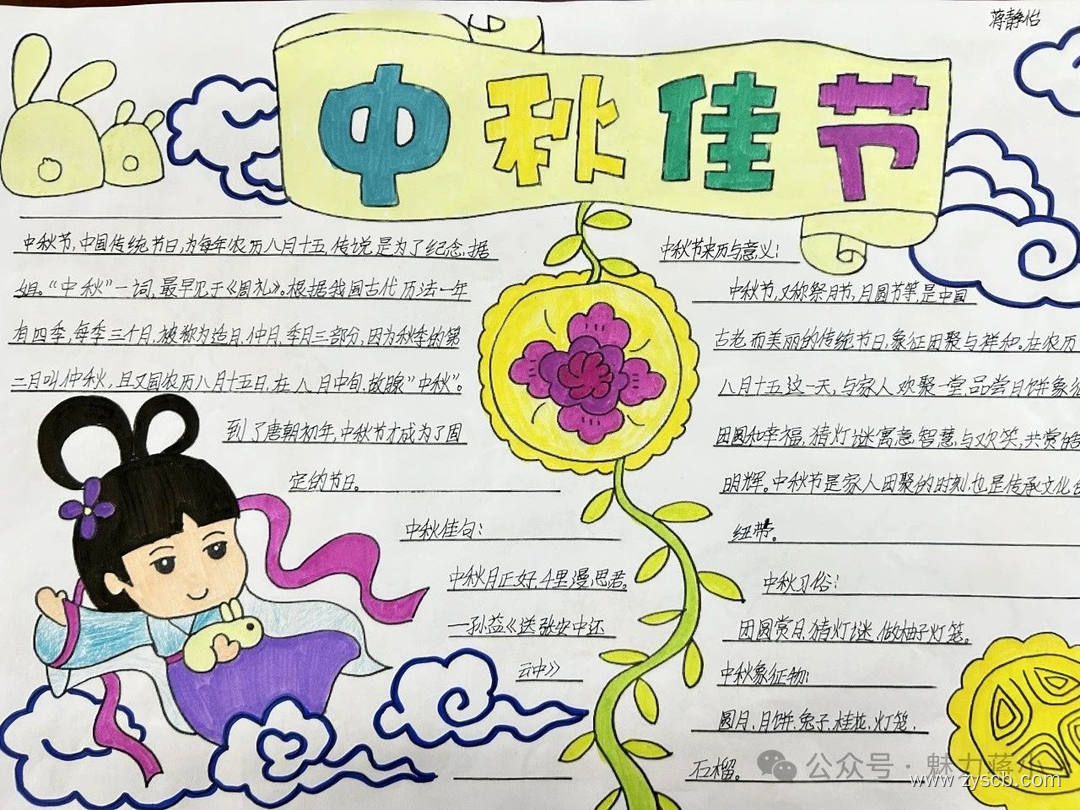 蒋静怡
中秋佳节
中秋节,中国传统节日,为每年农历八月十五,传说是为了纪念,据
姐。“中秋”一词,最早见于《周礼》。根据我国古代历法一年
有四季,每季三个月,被称为造月,仲月,季月三部分,因为秋季的第
二月叫仲秋,且又因农历八月十五日,在八月中旬,故 “中秋”。
到了唐朝初年,中秋节才成为了固
定的节日。
中秋佳句:
中秋月正好,4里漫思君。
一孙益《送张安中还
云中》
中秋节来历与意义:
中秋节,又称祭月节,月圆节等,是中国
古老而美丽的传统节日,象征团聚与祥和。在农历
八月十五这一天,与家人欢聚一堂,品尝月饼象
团圆和幸福,猜灯谜寓意智慧与欢笑,共赏
明辉。中秋节是家人团聚的时刻,也是传承文化
纽带。
中秋习俗:
团圆赏月,猜灯谜,做柚子灯笼。
中秋象征物:
圆月,月饼,兔子,桂花,灯笼,
石榴。
公众号 · 魅力
www.zyscb.com